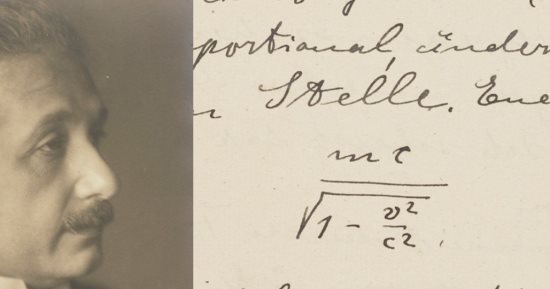 portional, änder
Stelle. Ene
mc
√1 - v²
c²